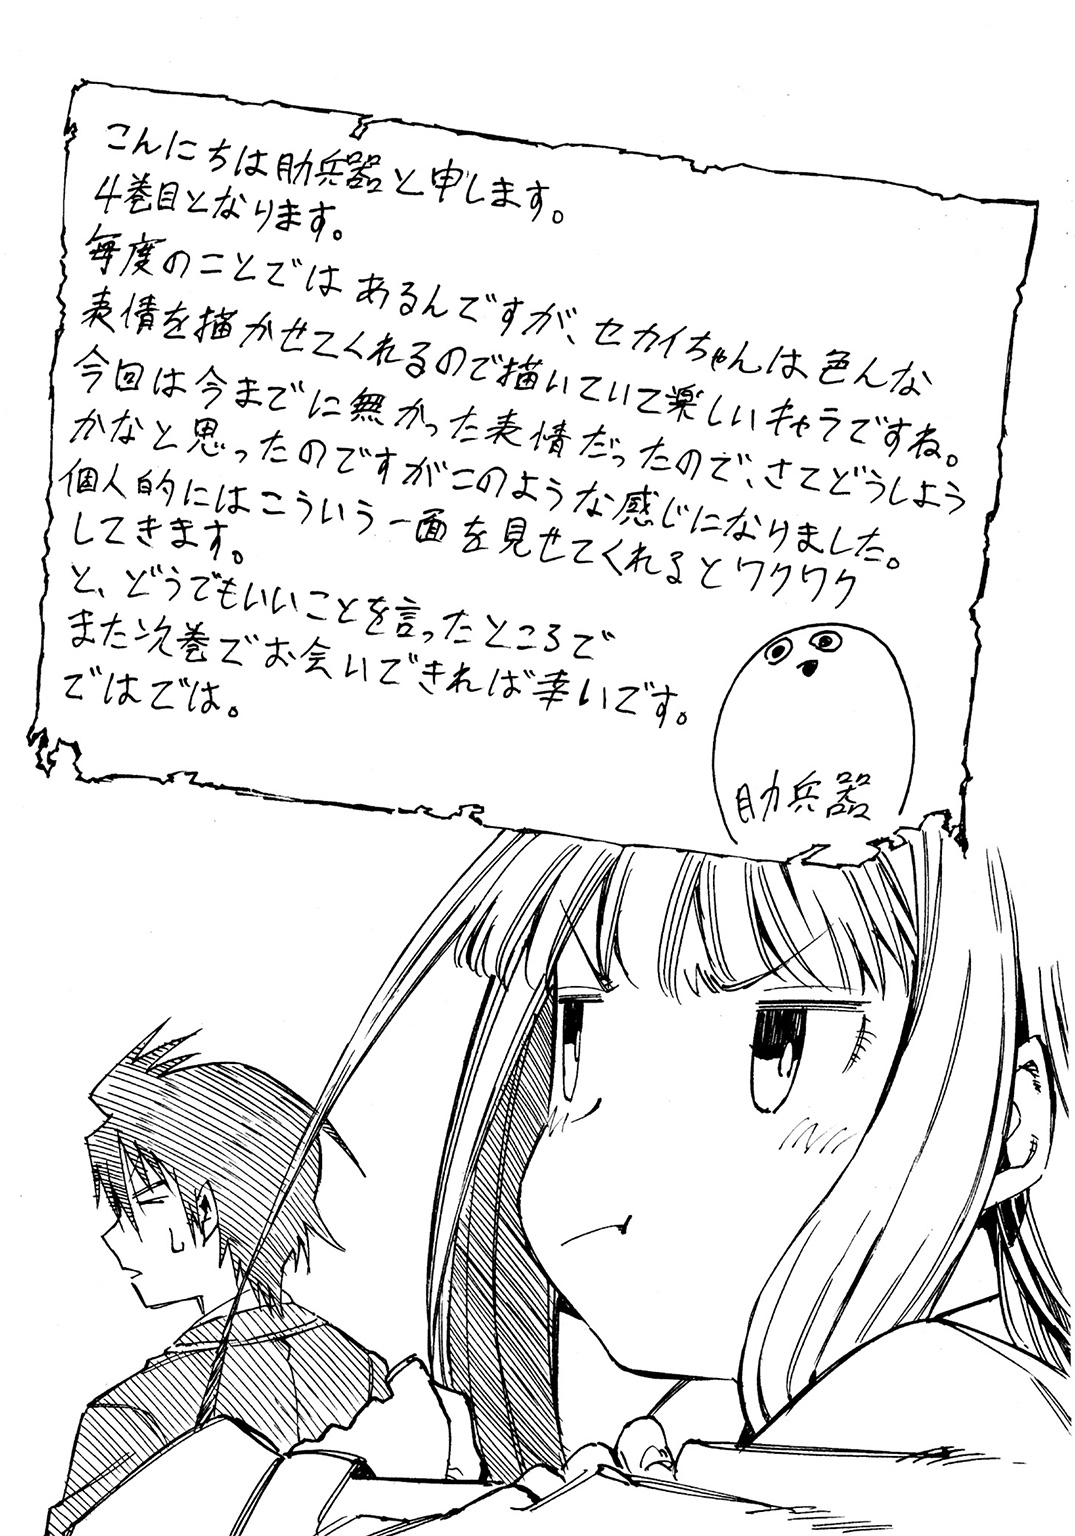 こんにちは助兵器と申します。
4巻目となります。
毎度のことではあるんですが、セカイちゃんは色んな
表情を描かせてくれるので描いていて楽しいキャラですね。
今回は今までに無かった表情だったので、さてどうしよう
かなと思ったのですがこのような感じになりました。
個人的にはこういう一面を見せてくれるとワクワク
してきます。
と、どうでもいいことを言ったところで
また次巻でお会いできれば幸いです。
ではでは。
助兵器